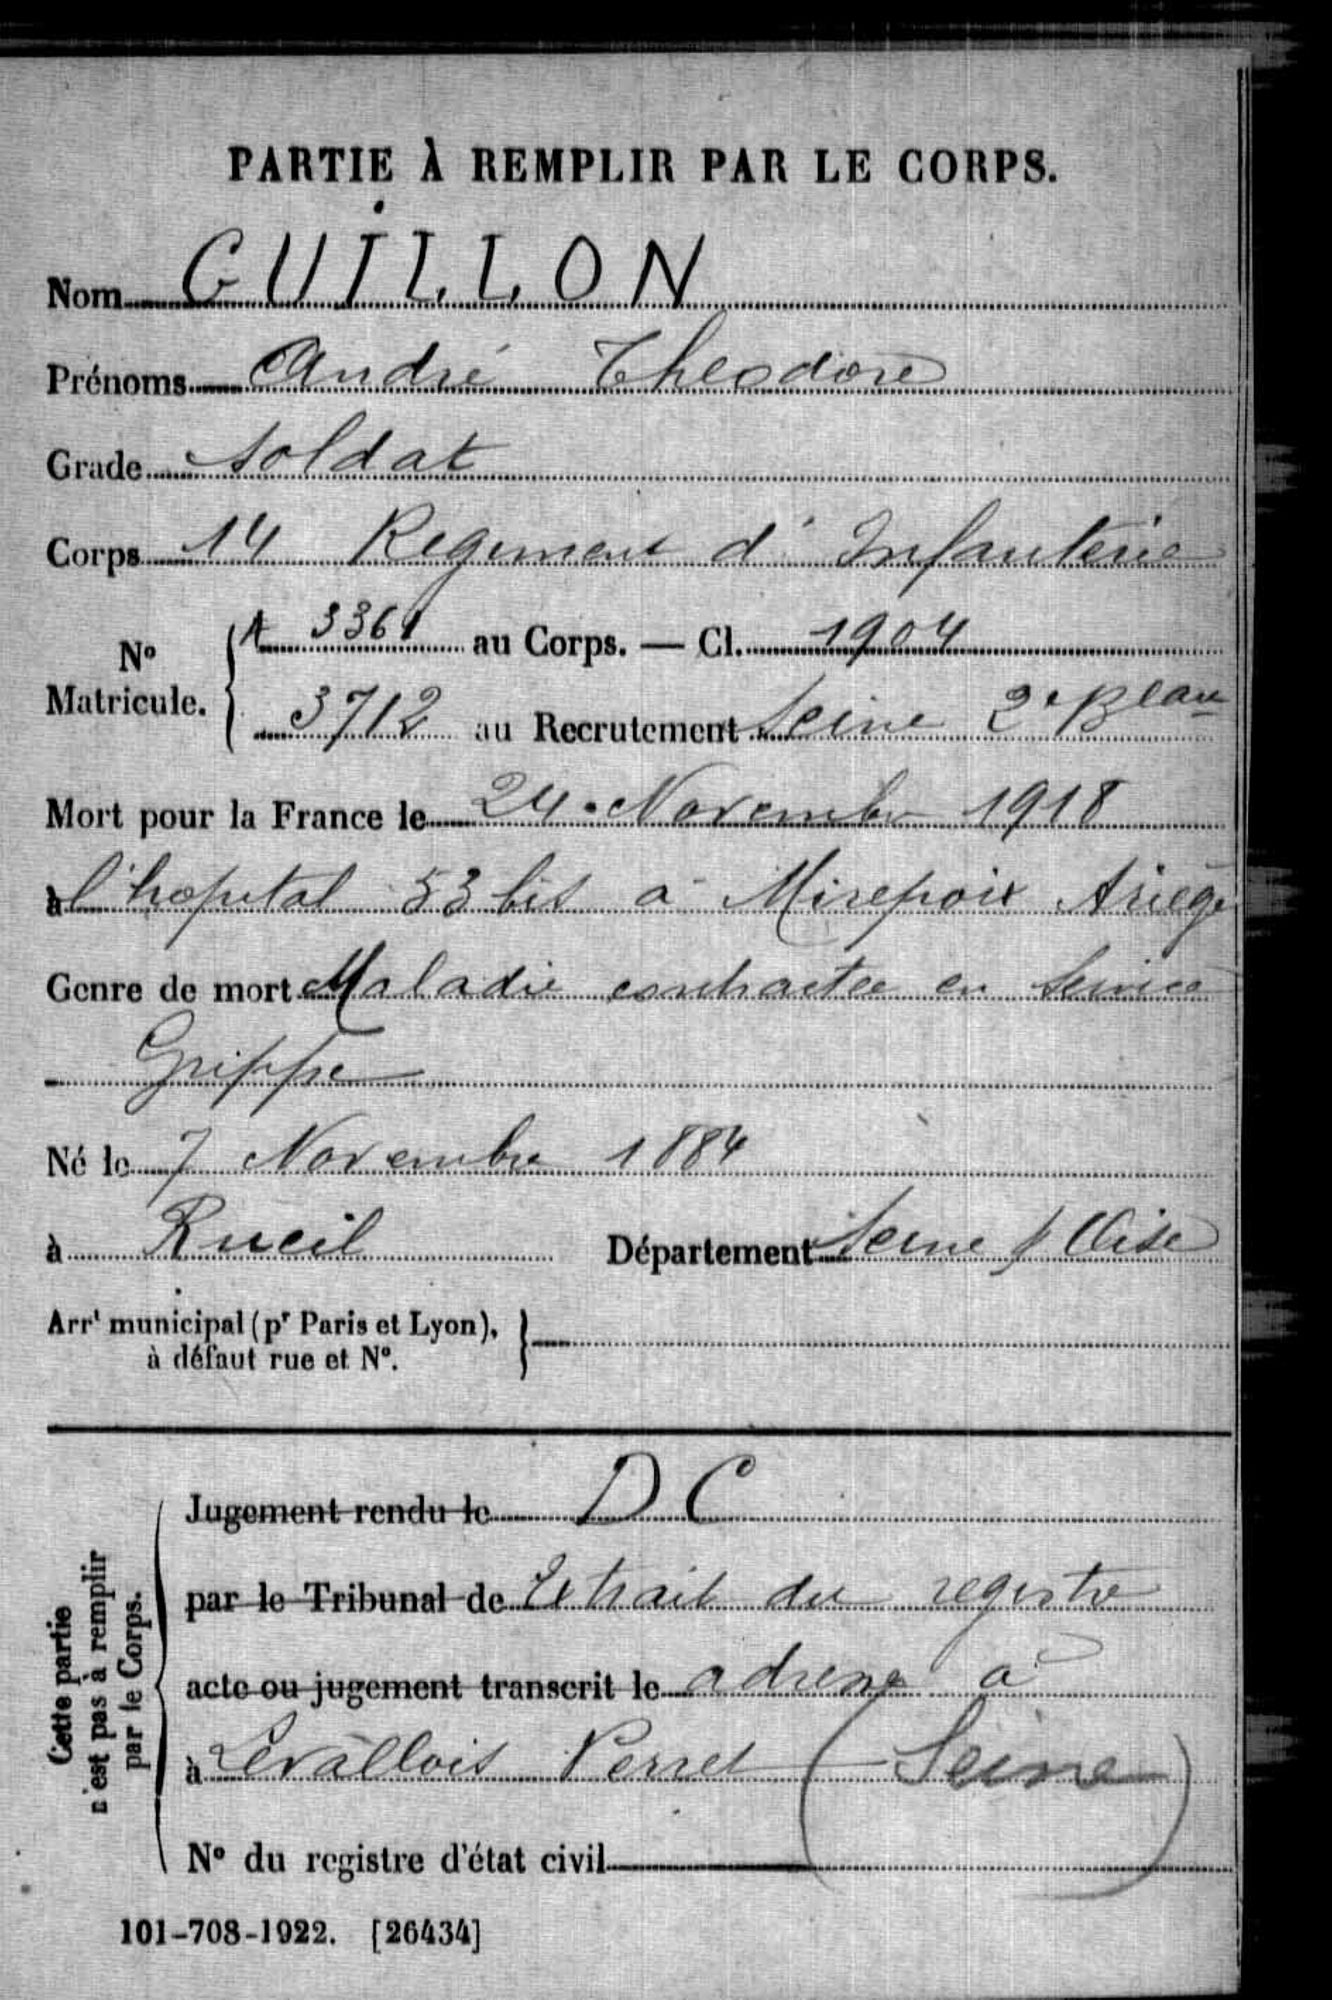 PARTIE À REMPLIR PAR LE CORPS.
Nom GUILLON
Prénoms André Theodore
Grade Soldat
Corps 14 Regiment d'Infanterie
N° Matricule. A 3361 au Corps. — Cl. 1904
3712 au Recrutement Seine 2e B
Mort pour la France le 24 Novembre 1918
à l'hopital 53 bis à Mirepoix Ariège
Genre de mort Maladie contractee en Service
Grippe
Né le 7 Novembre 1884
à Rueil Département Seine & Oise
Arrt municipal (pr Paris et Lyon),
à défaut rue et N°.
Cette partie
n'est pas à remplir
par le Corps.
Jugement rendu le D C
par le Tribunal de Extrait du registre
acte ou jugement transcrit le adressé à
à Levallois Perret (Seine)
N° du registre d'état civil
101-708-1922. [26434]